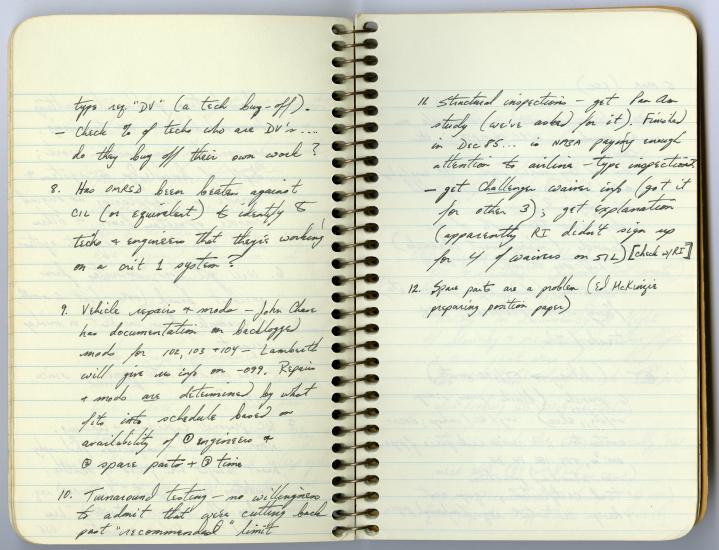 type req. "DV" (a tech buy-off).
- Check % of techs who are DV's....
do they buy off their own work?
8. Has OMRSD been beaten against
CIL (or equivalent) to identify to
techs + engineers that they're working
on a crit 1 system?
9. Vehicle repairs + mods - John Chase
has documentation on backlogged
mods for 102, 103 + 104 - Lamberth
will give us info on -099. Repairs
+ mods are determined by what
fits into schedule based on
availability of ① engineers +
② spare parts + ③ time
10. Turnaround testing - no willingness
to admit that we're cutting back
past "recommended" limit
11. Structural inspections - get Pan Am
study (we've asked for it). Finished
in Dec 85... is NASA paying enough
attention to airline-type inspections.
- get Challenger waiver info (got it
for other 3); get explanation
(apparently RI didn't sign up
for 4 of waivers on 51L) [check w/RI]
12. Spare parts are a problem (Ed McKinzie
preparing position paper)